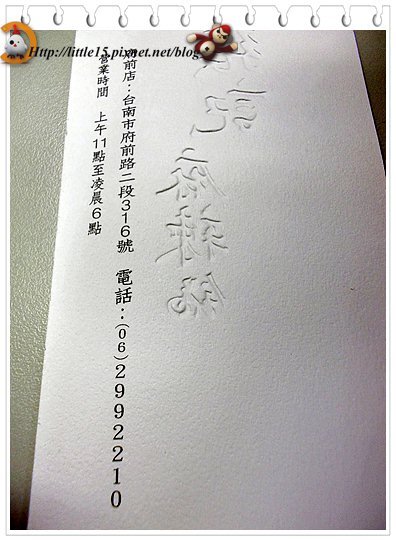 Http://little15.pixnet.net/blog
記麻辣鍋
府前店：台南市府前路二段316號 電話：(06)2992210
營業時間 上午11點至凌晨6點